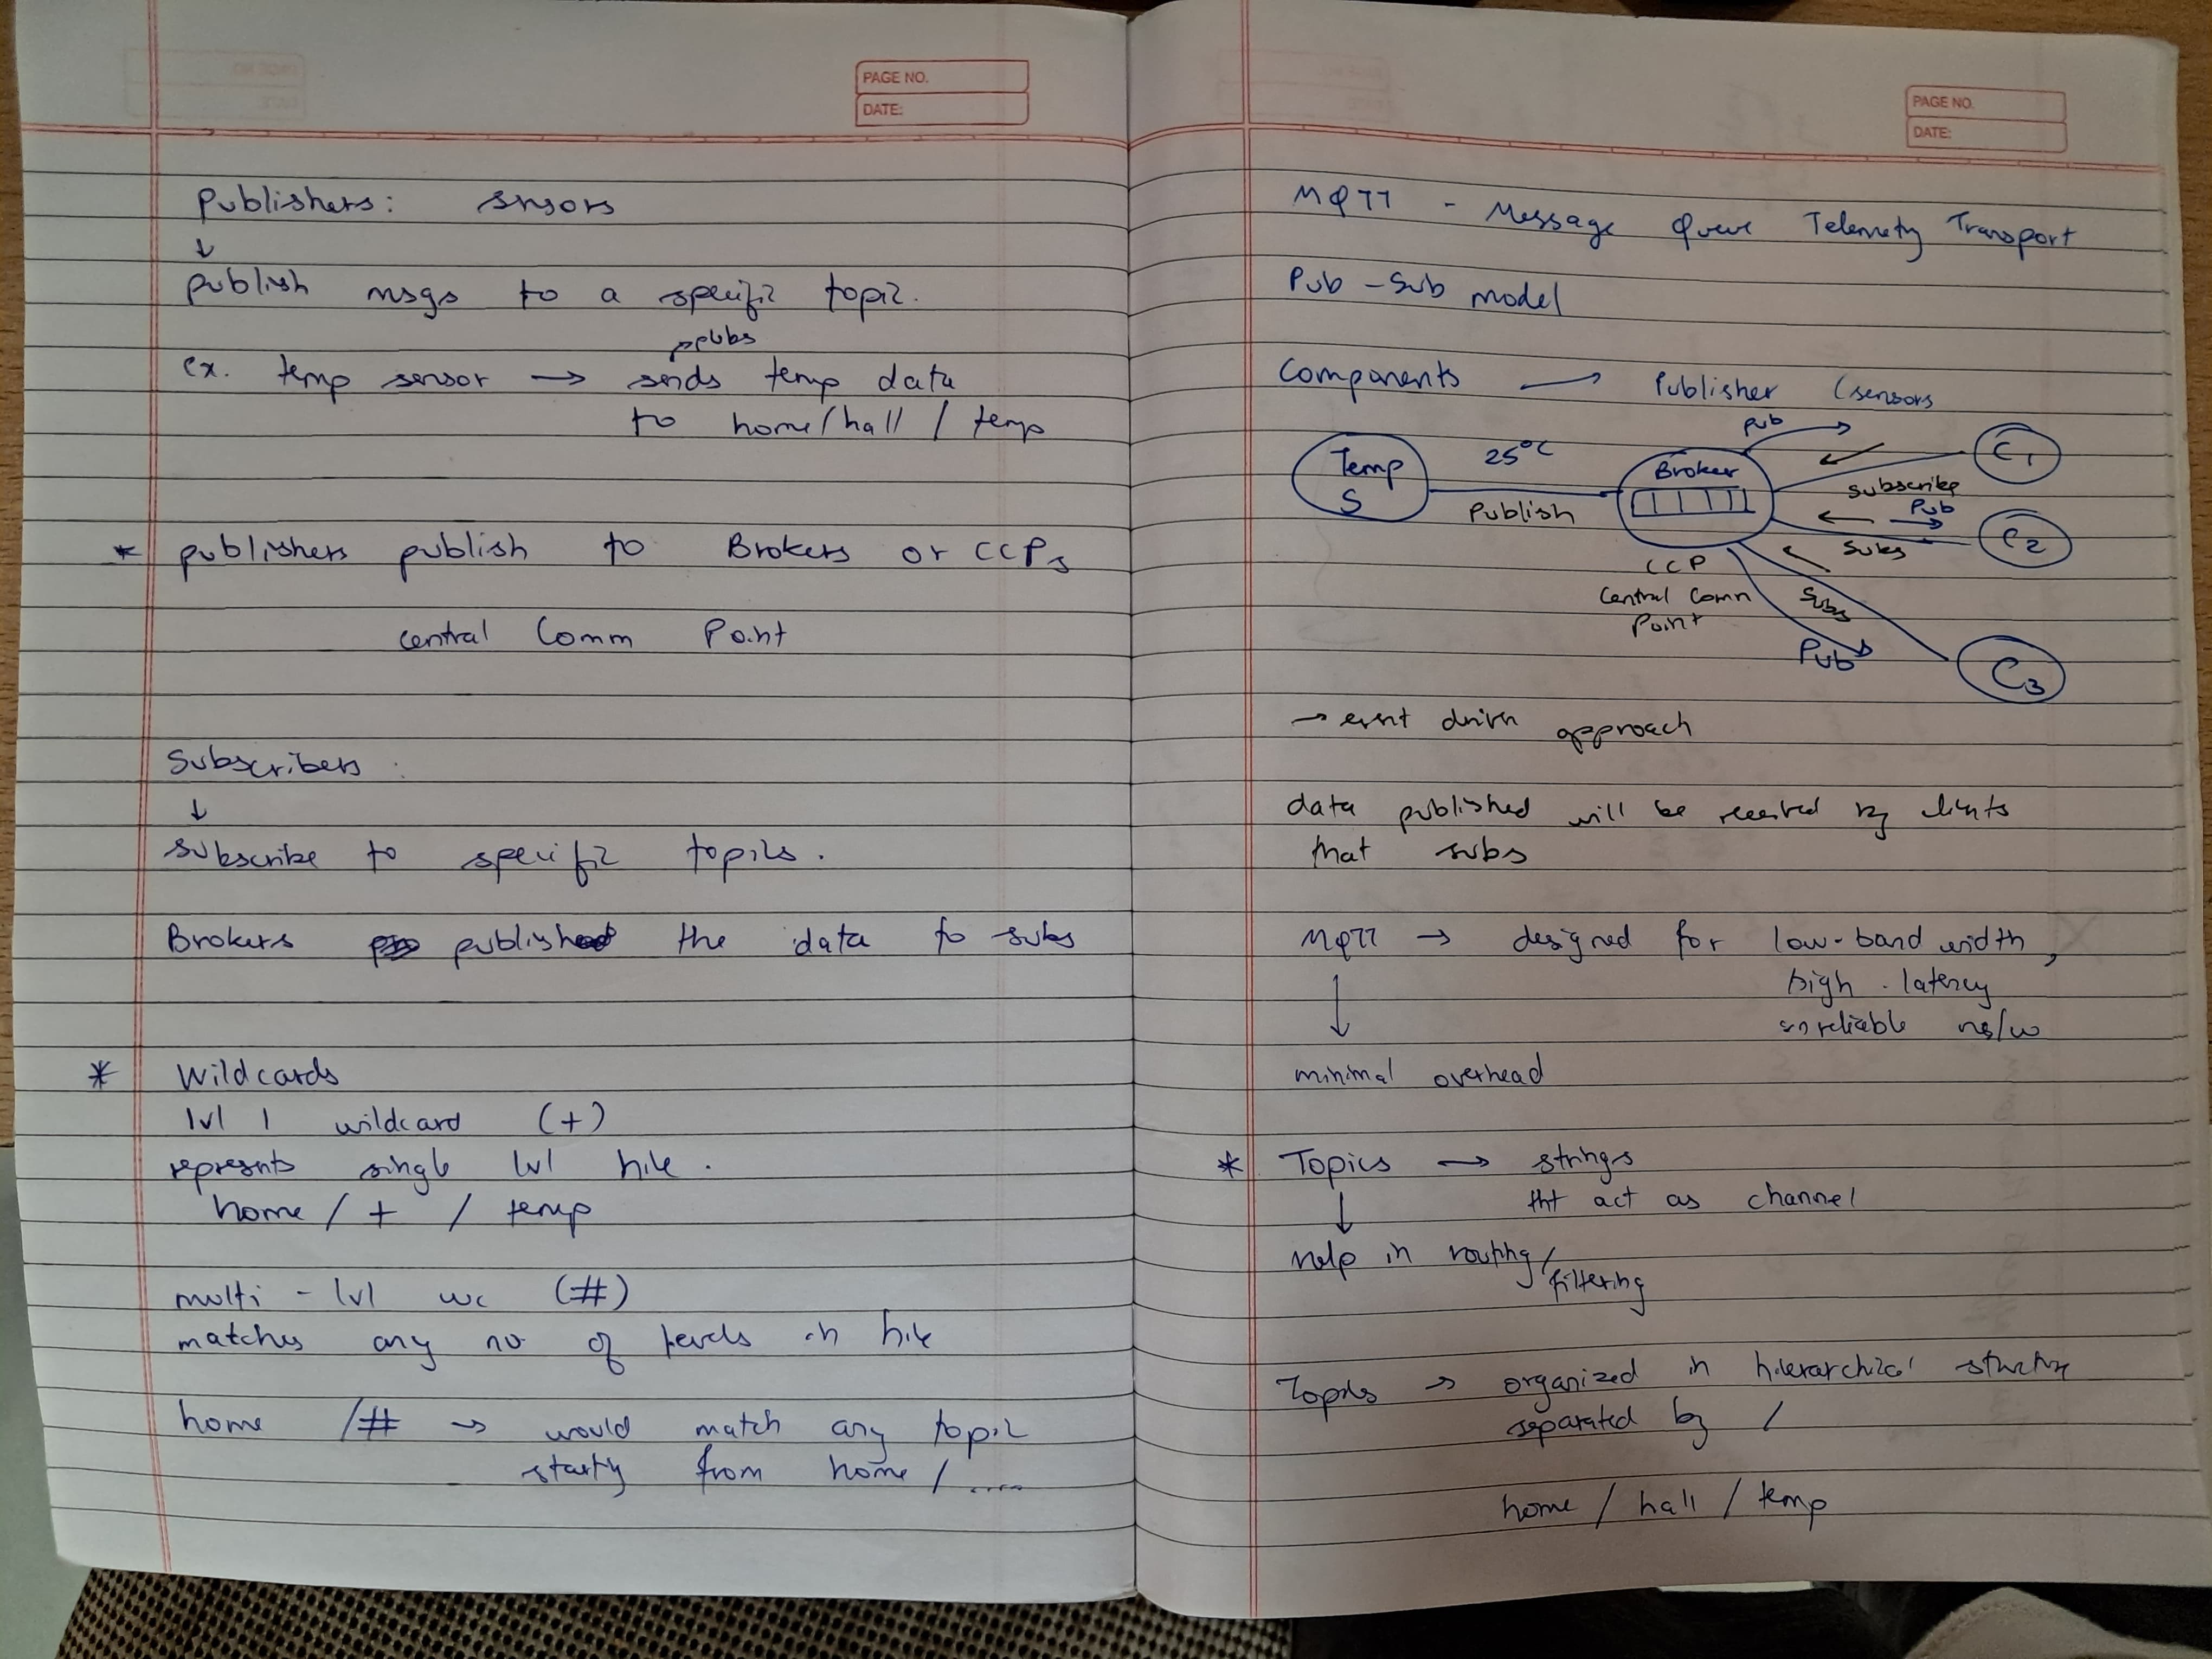 PAGE NO.
DATE:
publishers: snsors
↓
publish msgs to a specific topic.
pubs
ex. temp sensor → sends temp data
to home/hall / temp
* publishers publish to Brokers or CCPs
central Comm Point
Subscribers :
↓
subscribe to specific topics.
Brokers publish the data to subs
* Wildcards
lvl 1 wildcard (+)
represnts single lvl
home / + / temp
multi - lvl wc (#)
matches any no of levels in
home /# → would match any topic
starty from home / ....
PAGE NO.
DATE:
MQTT - Message Queue Telemetry Transport
Pub - Sub model
Components → Publisher (sensors
pub
Temp
S
25°C
Publish
Broker
C1
Subscribe
Pub
C2
Subs
CCP
Central Comm
Point
Subs
Pub
C3
→ event driven approach
data published will be received by clints
that subs
MQTT → designed for low-band width,
high . latency
unreliable
↓
minimal overhead
* Topics → strings
tht act as channel
↓
help in routing/
filtering
Topics → organized in hierarchical structure
separated by /
home / hall / temp